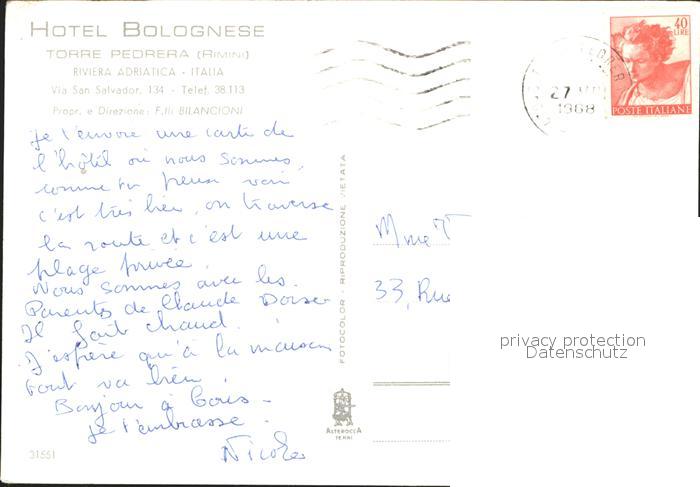 HOTEL BOLOGNESE
TORRE PEDRERA (RIMINI)
RIVIERA ADRIATICA - ITALIA
Via San Salvador, 134 - Telef. 38.113
Propr. e Direzione: F.lli BILANCIONI
je t'envoie une carte de
l'hôtel où nous sommes,
comme tu peux voir
c'est très bien, on traverse
la route et c'est une
plage privée.
Nous sommes avec les
Parents de Claude
Il fait chaud.
J'espère qu'à la maison
tout va bien.
Bonjour à tous -
je t'embrasse.
Nicole
31551
FOTOCOLOR - RIPRODUZIONE VIETATA
ALTEROCCA
TERNI
27
1968
40
LIRE
POSTE ITALIANE
Mme
33, Rue
privacy protection
Datenschutz